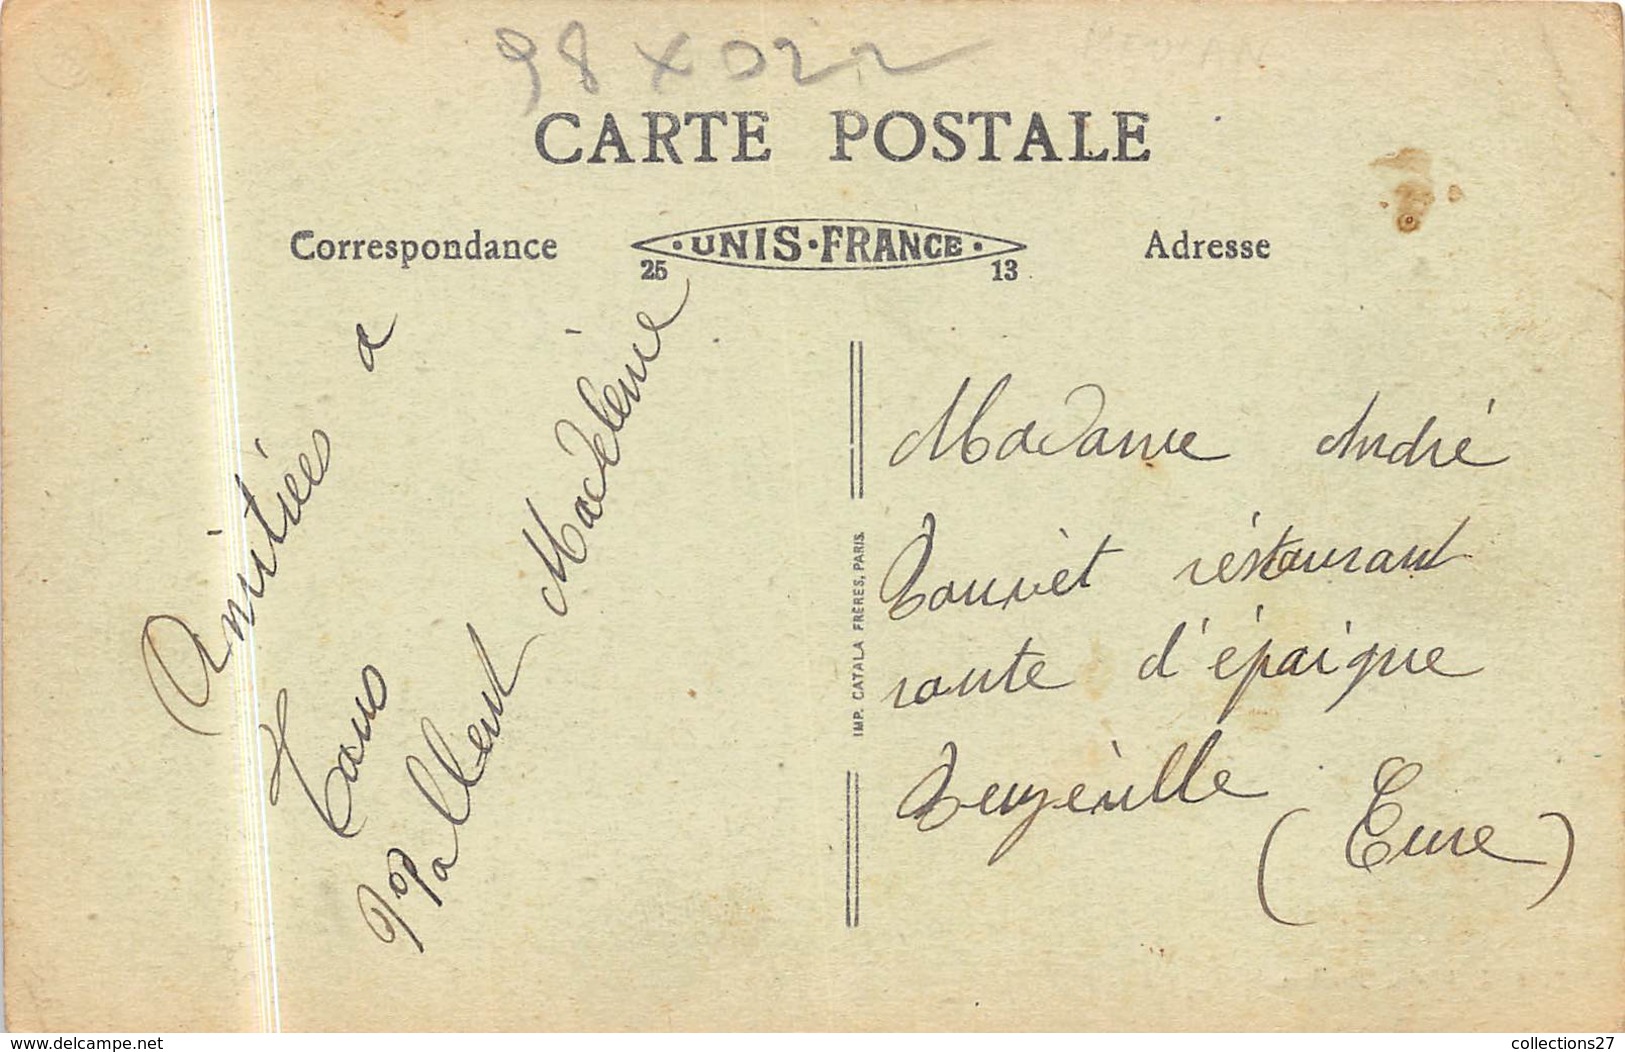 98 x 022
CARTE POSTALE
Correspondance
UNIS·FRANCE
25 13
Adresse
Amitiées a
Tous
Pallent Madeleine
IMP. CATALA FRÈRES, PARIS.
Madame André
réstaurant
route d'épaigne
Beuzeville
(Eure)
www.delcampe.net
collections27